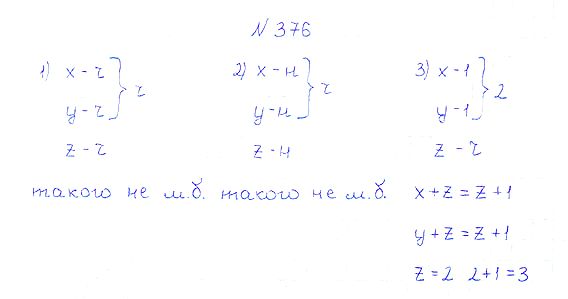 N 376
1) x - ч } ч 2) x - н } ч 3) x - 1 } 2
y - ч y - н y - 1
z - ч z - н z - ч
такого не м.б. такого не м.б. x + z = z + 1
y + z = z + 1
z = 2 2 + 1 = 3